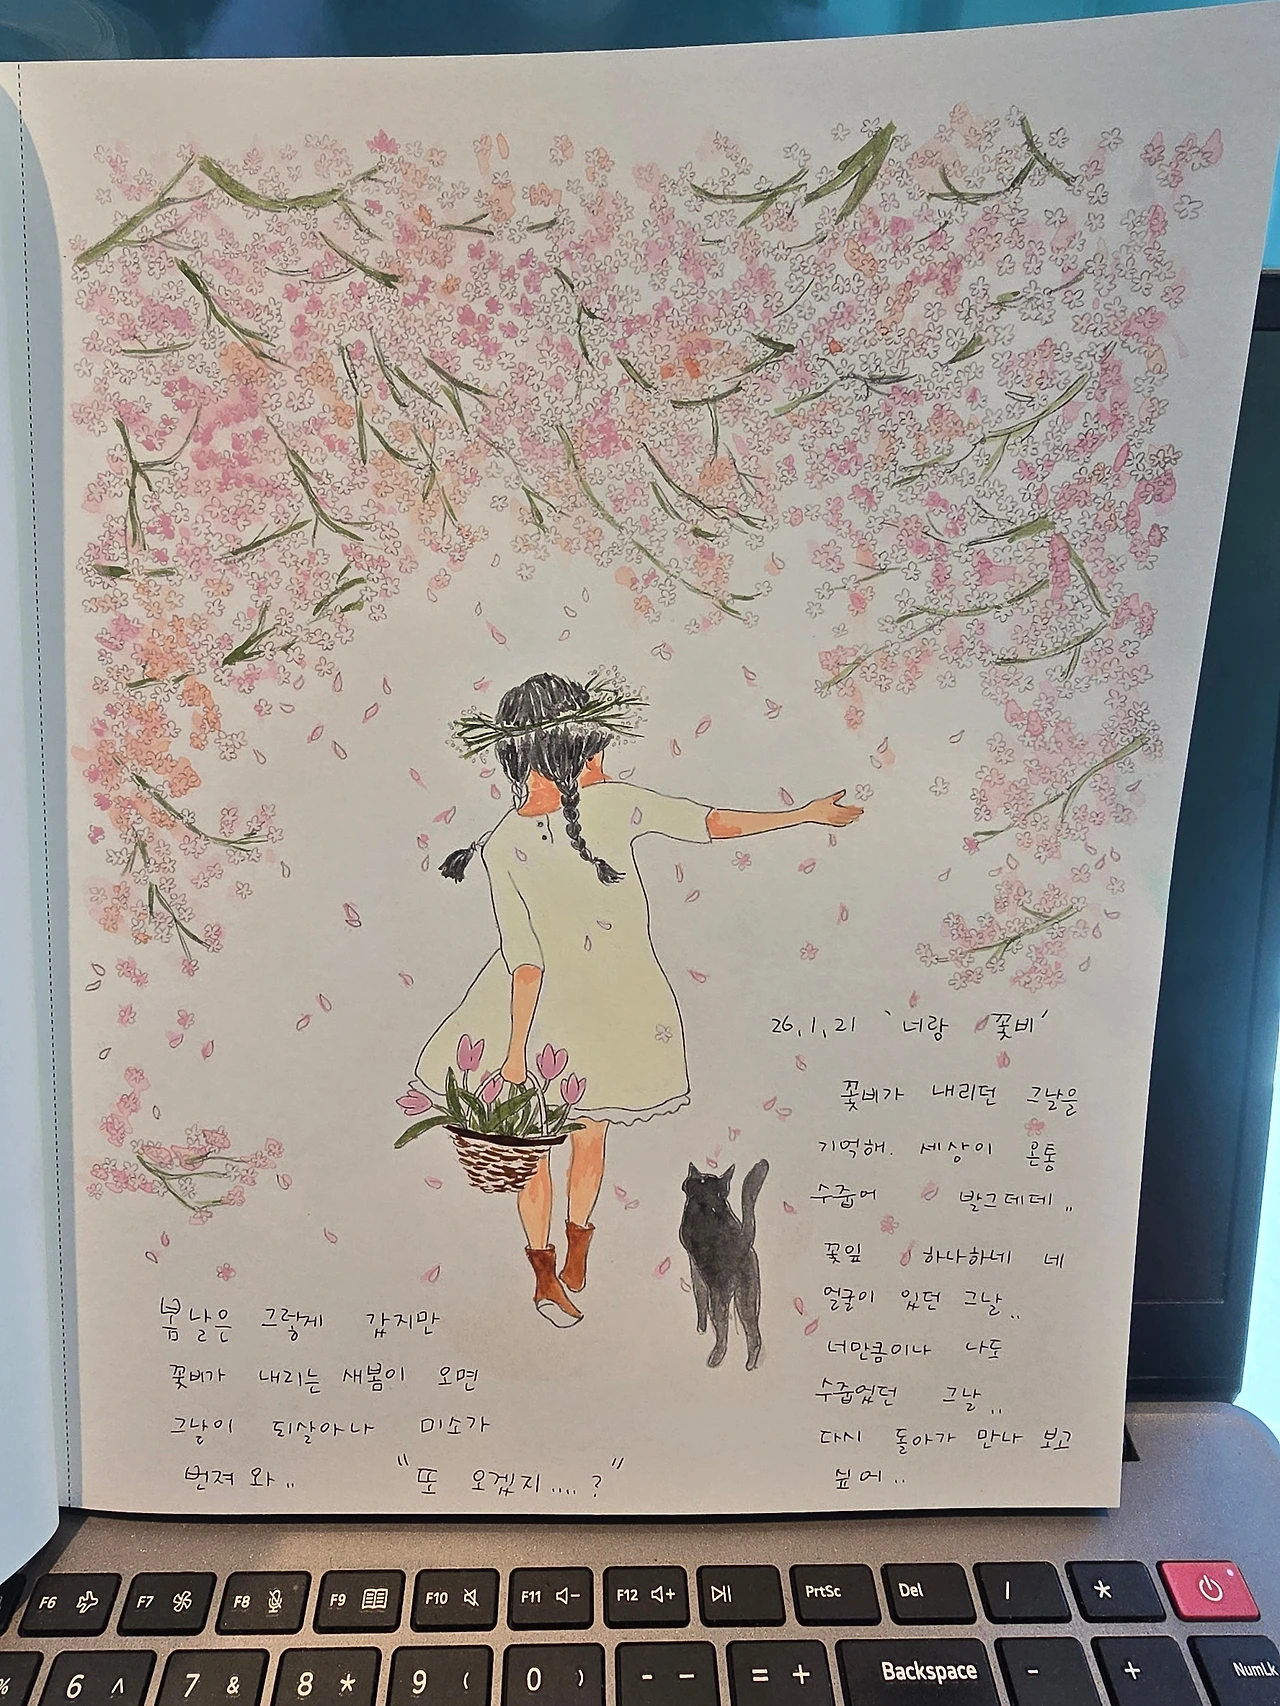 26.1.21 '너랑 꽃비'
꽃비가 내리던 그날을
기억해. 세상이 온통
수줍어 발그데데..
꽃잎 하나하네 네
얼굴이 있던 그날..
너만큼이나 나도
수줍었던 그날..
다시 돌아가 만나 보고
싶어..
봄날은 그렇게 갔지만
꽃비가 내리는 새봄이 오면
그날이 되살아나 미소가
번져 와..
"또 오겠지....?"
F6
F7
F8
F9
F10
F11
F12
PrtSc
Del
/
*
%
6 ^
7 &
8 *
9 (
0 )
- -
= +
Backspace
-
+
NumLk